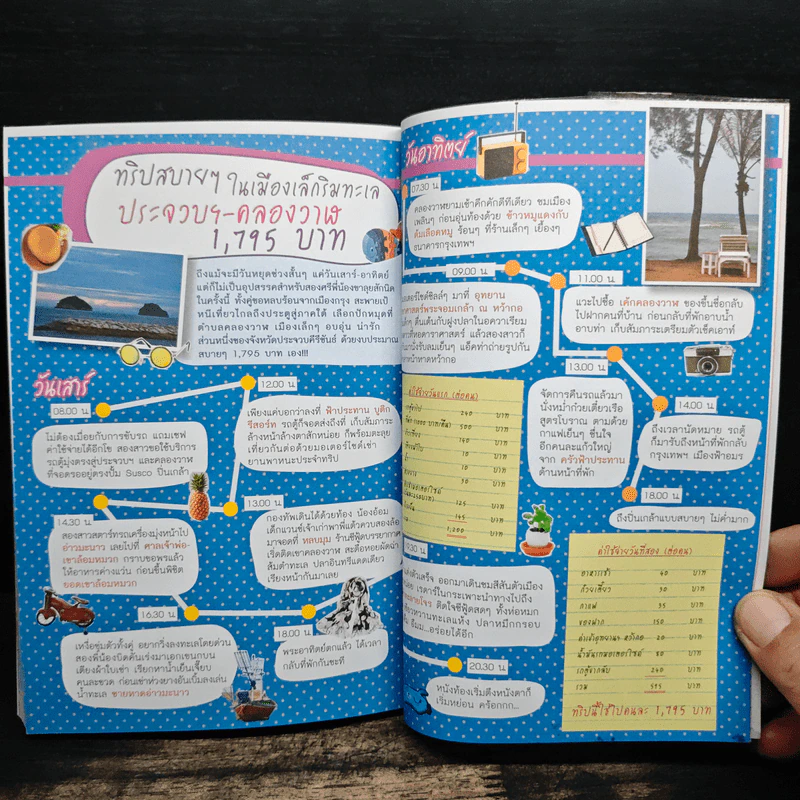 ทริปสบายๆ ในเมืองเล็กริมทะเล
ประจวบฯ-คลองวาฬ
1,795 บาท
ถึงแม้จะมีวันหยุดช่วงสั้นๆ แค่วันเสาร์-อาทิตย์
แต่ก็ไม่เป็นอุปสรรคสำหรับสองศรีพี่น้องขาลุยสักนิด
ในครั้งนี้ ทั้งคู่ขอหลบร้อนจากเมืองกรุง สะพายเป้
หนีเที่ยวไกลถึงประตูสู่ภาคใต้ เลือกปักหมุดที่
ตำบลคลองวาฬ เมืองเล็กๆ อบอุ่น น่ารัก
ส่วนหนึ่งของจังหวัดประจวบคีรีขันธ์ ด้วยงบประมาณ
สบายๆ 1,795 บาท เอง!!!
วันเสาร์
08.00 น.
ไม่ต้องเมื่อยกับการขับรถ แถมเซฟ
ค่าใช้จ่ายได้อีกโข สองสาวขอใช้บริการ
รถตู้มุ่งตรงสู่ประจวบฯ และคลองวาฬ
ที่จอดรออยู่ตรงปั๊ม Susco ปิ่นเกล้า
12.00 น.
เพียงแค่บอกว่าลงที่ ฟ้าประทาน บูติก
รีสอร์ท รถตู้ก็จอดส่งถึงที่ เก็บสัมภาระ
ล้างหน้าล้างตาสักหน่อย ก็พร้อมตะลุย
เที่ยวกันต่อด้วยมอเตอร์ไซค์เช่า
ยานพาหนะประจำทริป
13.00 น.
กองทัพเดินได้ด้วยท้อง น้องอ้อม
เด็กแวนซ์เจ้าเก่าพาพี่แต้วควบสองล้อ
มาจอดที่ หลบมุม ร้านซีฟู้ดบรรยากาศ
เริ่ดติดเขาคลองวาฬ สะดือหอยผัดฉ่า
ส้มตำทะเล ปลาอินทรีแดดเดียว
เรียงหน้ากันมาเลย
14.30 น.
สองสาวสตาร์ทรถเครื่องมุ่งหน้าไป
อ่าวมะนาว เลยไปที่ ศาลเจ้าพ่อ-
เขาล้อมหมวก กราบขอพรแล้ว
ให้อาหารค่างแว่น ก่อนขึ้นพิชิต
ยอดเขาล้อมหมวก
16.30 น.
เหงื่อชุ่มตัวทั้งคู่ อยากวิ่งลงทะเลโดยด่วน
สองพี่น้องบิดคันเร่งมาเอกเขนกบน
เตียงผ้าใบเช่า เรียกหาน้ำเย็นเจี๊ยบ
คนละขวด ก่อนเช่าห่วงยางอันเบิ้มลงเล่น
น้ำทะเล ชายหาดอ่าวมะนาว
18.00 น.
พระอาทิตย์ตกแล้ว ได้เวลา
กลับที่พักกันซะที
วันอาทิตย์
07.30 น.
คลองวาฬยามเช้าคึกคักดีทีเดียว ชมเมือง
เพลินๆ ก่อนอุ่นท้องด้วย ข้าวหมูแดงกับ
ต้มเลือดหมู ร้อนๆ ที่ร้านเล็กๆ เยื้องๆ
ธนาคารกรุงเทพฯ
09.00 น.
เตอร์ไซค์ชิลล์ๆ มาที่ อุทยาน
าศาสตร์พระจอมเกล้า ณ หว้ากอ
เล็กๆ ตื่นเต้นกับฝูงปลาในอควาเรียม
กที่หอดาราศาสตร์ แล้วสองสาวก็
นั่งรับลมเย็นๆ แอ็คท่าถ่ายรูปกัน
หาดหว้ากอ
11.00 น.
แวะไปซื้อ เค้กคลองวาฬ ของขึ้นชื่อกลับ
ไปฝากคนที่บ้าน ก่อนกลับที่พักอาบน้ำ
อาบท่า เก็บสัมภาระเตรียมตัวเช็คเอาท์
13.00 น.
จัดการคืนรถแล้วมา
นั่งหม่ำก๋วยเตี๋ยวเรือ
สูตรโบราณ ตามด้วย
กาแฟเย็นๆ ชื่นใจ
อีกคนละแก้วใหญ่
จาก ครัวฟ้าประทาน
ด้านหน้าที่พัก
14.00 น.
ถึงเวลานัดหมาย รถตู้
ก็มารับถึงหน้าที่พักกลับ
กรุงเทพฯ เมืองฟ้าอมร
18.00 น.
ถึงปิ่นเกล้าแบบสบายๆ ไม่ค่ำมาก
ค่าใช้จ่ายวันแรก (ต่อคน)
240 บาท
500 บาท
140 บาท
บาท
บาท
125 บาท
145 บาท
1,200 บาท
19.30 น.
ตัวเสร็จ ออกมาเดินชมสีสันตัวเมือง
เรดาร์ในกระเพาะนำทางไปถึง
ติดใจซีฟู้ดสดๆ ทั้งห่อหมก
วหวานทะเลแห้ง ปลาหมึกกรอบ
อร่อยได้อีก
20.30 น.
หนังท้องเริ่มตึงหนังตาก็
เริ่มหย่อน คร้อกกก...
ค่าใช้จ่ายวันที่สอง (ต่อคน)
อาหารเช้า 40 บาท
ก๋วยเตี๋ยว 30 บาท
กาแฟ 35 บาท
ของฝาก 150 บาท
ค่าเข้าอุทยานฯ หว้ากอ 20 บาท
น้ำมันรถมอเตอร์ไซค์ บาท
รถตู้ขากลับ 240 บาท
รวม 595 บาท
ทริปนี้ใช้ไปคนละ 1,795 บาท